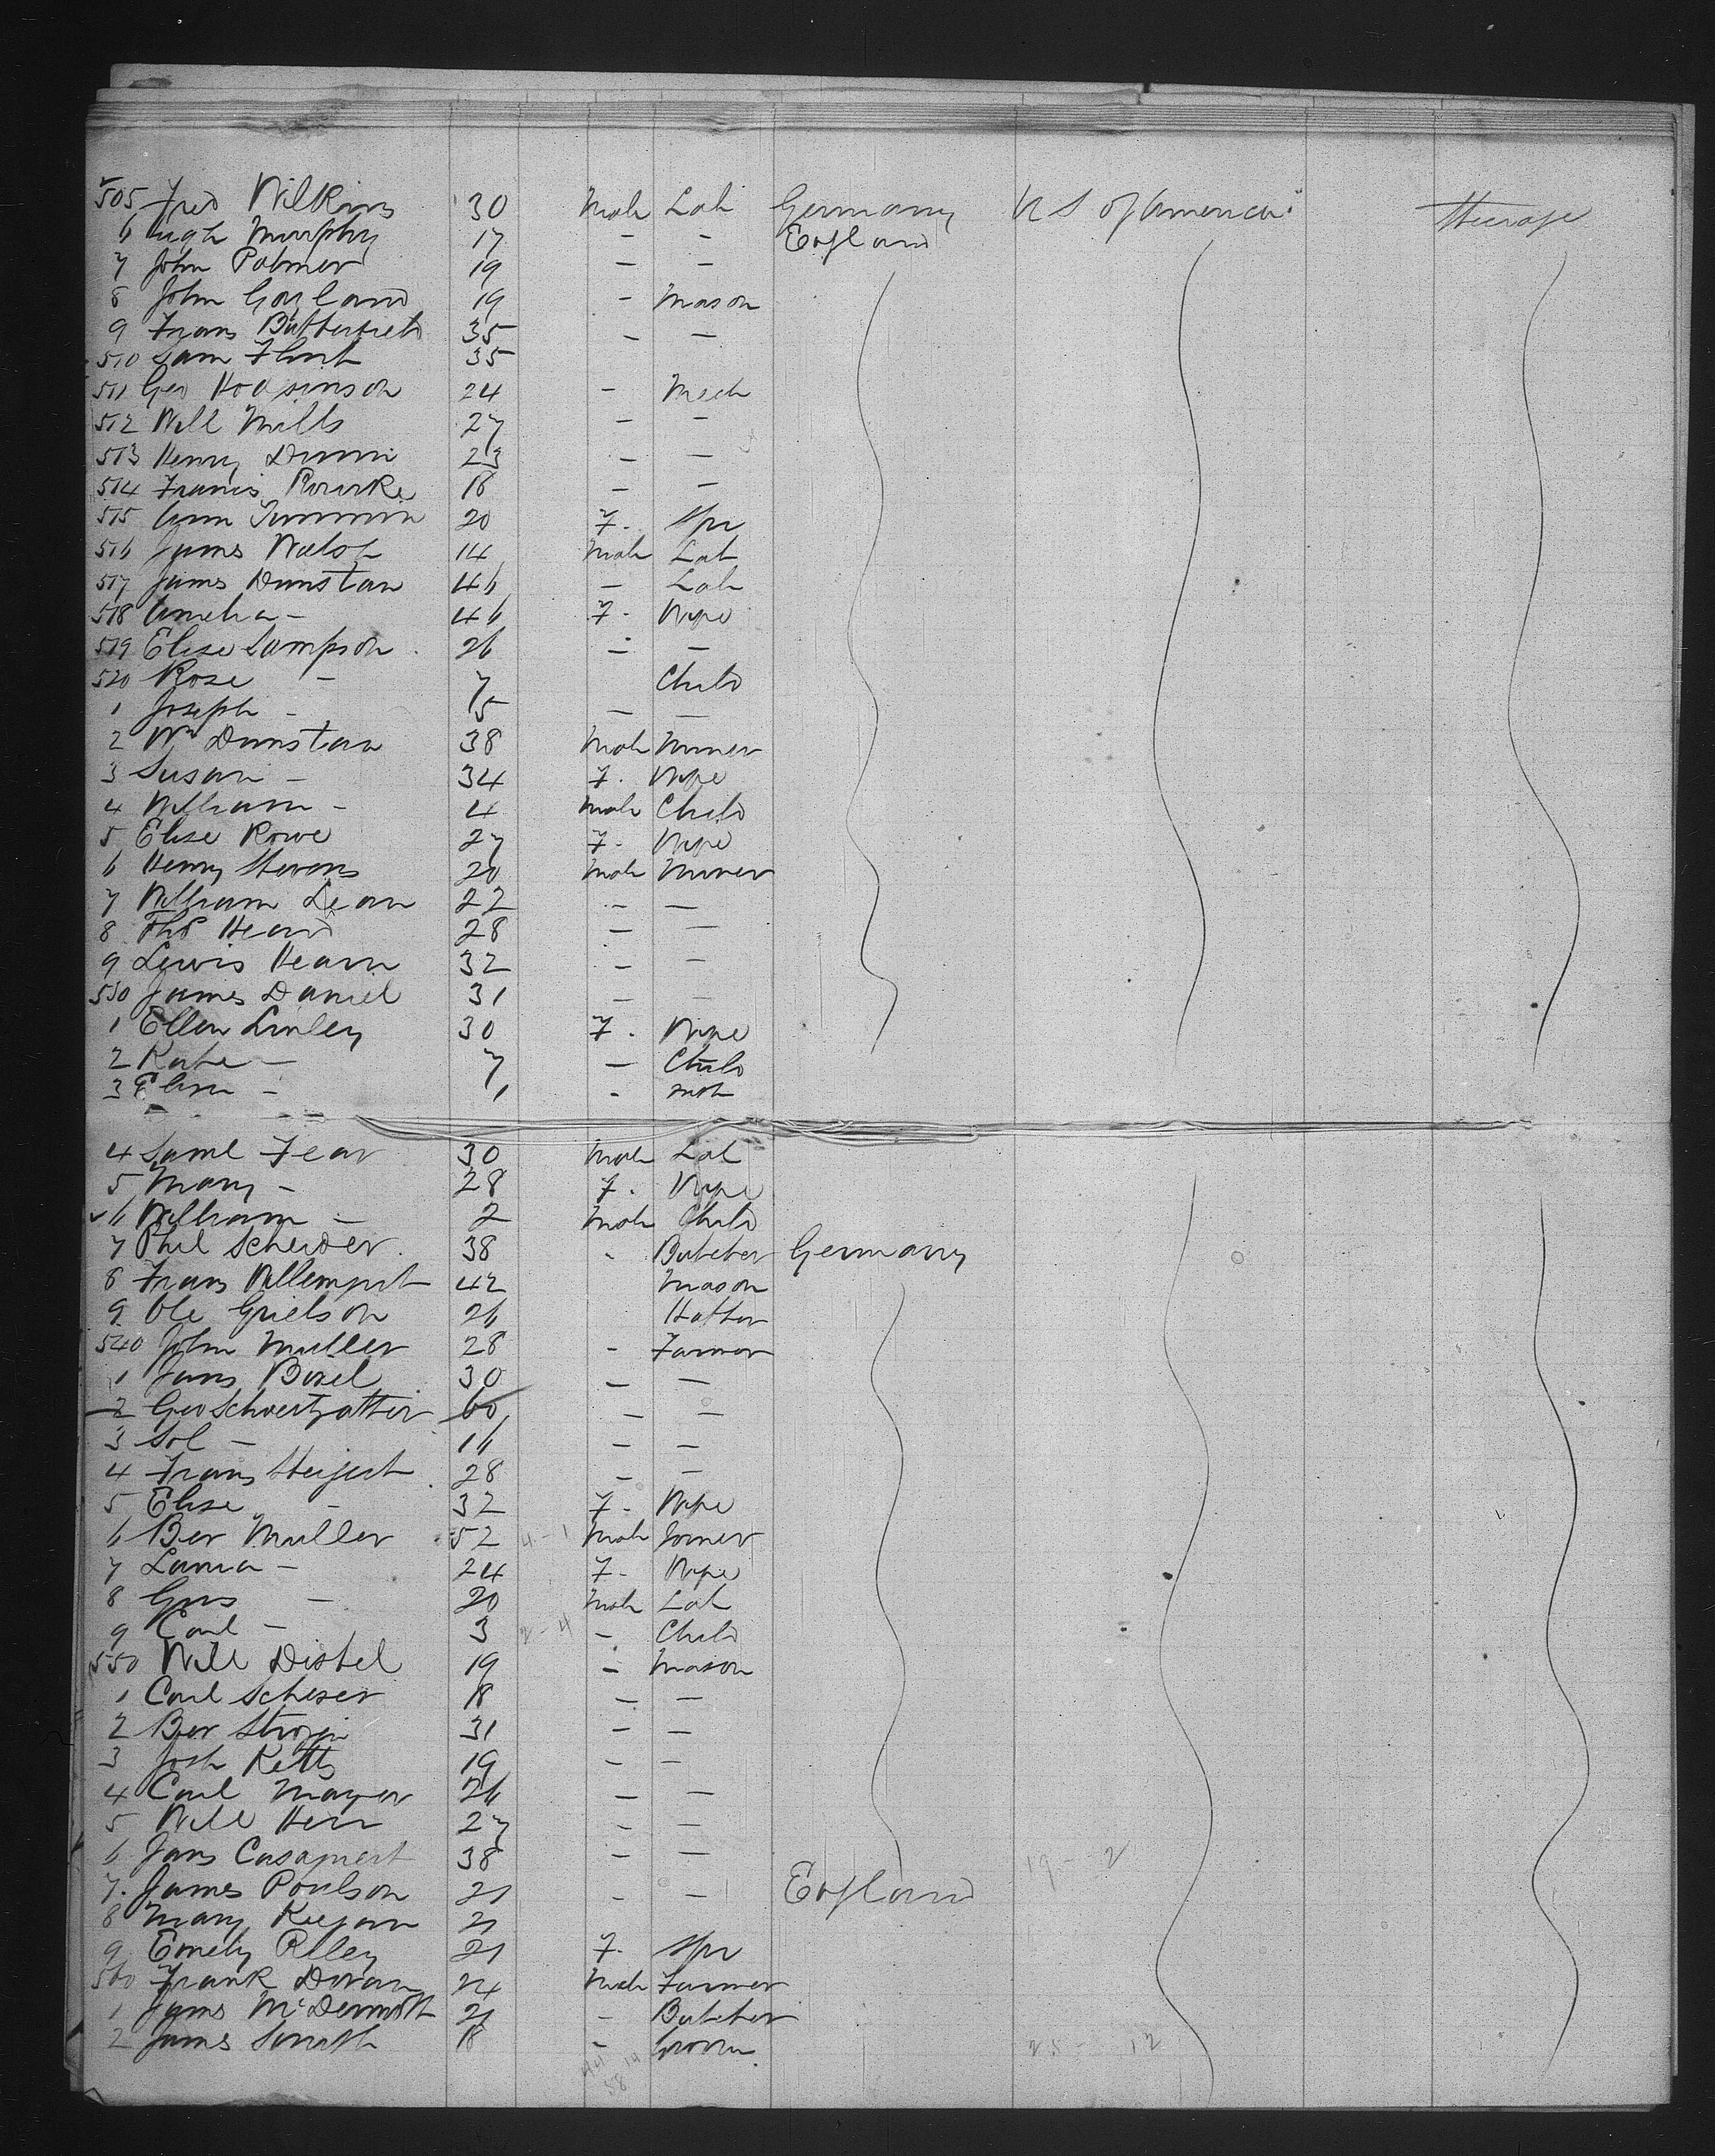 505 Fred Wilkins 30 Male Lab Germany U S of America Steerage
6 Hugh Murphy 17 - - England
7 John Palmer 19 - -
8 John Gayland 19 - Mason
9 Frans Butterfield 35 - -
510 Sam Flint 35
511 Geo Hodsinson 24 - Mech
512 Will Mills 27 - -
513 Henry Dunn 23 - -
514 Francis Rourke 18 - -
515 Ann Timmin 20 F. Spr
516 James Walsh 14 Male Lab
517 James Dunstan 46 - Lab
518 Amelia - 46 F. Wife
519 Elise Sampson 26 - -
520 Rose - 7 Child
1 Joseph - 5 - -
2 Wm Dunstan 38 Male Miner
3 Susan - 34 F. Wife
4 William - 4 Male Child
5 Elise Rowe 27 F. Wife
6 Henry Stevens 20 Male Miner
7 William Dean 22 - -
8 Thos Heard 28 - -
9 Lewis Hearn 32 - -
530 James Daniel 31 - -
1 Ellen Linley 30 F. Wife
2 Kate - 7 - Child
3 Elien - 1 - mth
4 Saml Fear 30 Male Lab
5 Mary - 28 F. Wife
6 William - 2 Male Child
7 Phil Scheider 38 - Butcher Germany
8 Frans 42 Mason
9 Ole Grielson 26 Hatter
540 John Muller 28 - Farmer
1 Jans Boxel 30 - -
2 Geo 60 - -
3 Sol - 16 - -
4 Frans 28 - -
5 Elise - 32 F. Wife
6 Ber Muller 52 4-1 Male Joiner
7 Lania - 24 F. Wife
8 Gus - 20 Male Lab
9 Carl - 3 2-4 - Child
550 Will Distel 19 - Mason
1 Carl Scheser 18 - -
2 Ber 31 - -
3 Josh Ketts 19 - -
4 Carl Mayer 26 - -
5 Will Herr 27 - -
6 Jans 38 - - 19-2
7. James Poulson 21 - - England
8 Mary Keegan 21
9 Emely Rlley 21 F. Spr
560 Frank Doran 24 Male Farmer
1 Jams McDermott 21 - Butcher
2 James Smith 18 - Groom 25- 12
58